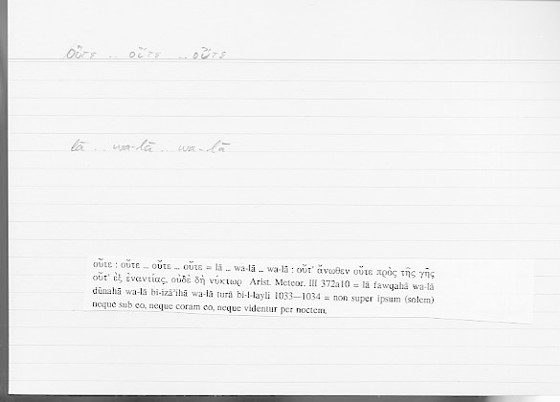 οὔτε .. οὔτε .. οὔτε
lā .. wa-lā .. wa-lā
οὔτε : οὔτε ... οὔτε ... οὔτε = lā ... wa-lā ... wa-lā : οὔτ' ἄνωθεν οὔτε πρὸς τῆς γῆς
οὔτ' ἐξ ἐναντίας, οὐδὲ δὴ νύκτωρ Arist. Meteor. III 372a10 = lā fawqahā wa-lā
dūnahā wa-lā bi-izā'ihā wa-lā turā bi-l-layli 1033—1034 = non super ipsum (solem)
neque sub eo, neque coram eo, neque videntur per noctem.